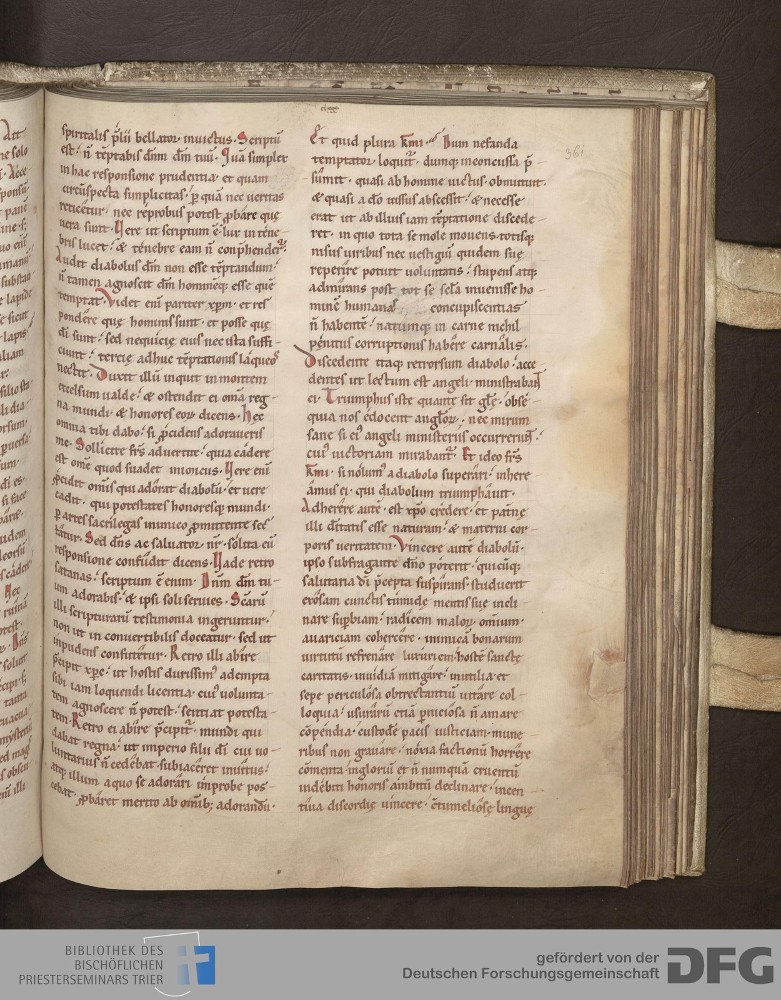 spiritalis p̄lii bellator inuictus. Scriptū
est. n̄ tēptabis dn̄m dm̄ tuū. Quā simplex
in hac responsione prudentia et quam
circūspecta simplicitas. ꝑ quā nec ueritas
reticetur. nec reprobus potest ꝓbare que
uera sunt. Vere ut scriptum ē. lux in tene-
bris lucet. & tenebre eam n̄ conp̄hender̄.
Audit diabolus dn̄m non esse tēptandum.
n̄ tamen agnoscit dm̄ hominēq; esse quē
temptat. Videt enī pariter xp̄m. et res
pondere que hominis sunt. et posse que
dī sunt. sed nequicie eius nec ista suffi-
ciunt. tercie adhuc tēptationis laqueos
nectit. Duxit illū inquit in montem
excelsum ualde. & ostendit ei om̄a reg-
na mundi. & honores eoꝝ dicens. Hec
omnia tibi dabo. si ꝓcidens adoraueris
me. Sollicite fr̄s aduertite. qua cadere
est om̄e quod suadet inimicus. Vere enī
ꝓcidit om̄is qui adorat diabolū. et uere
cadit. qui potestates honoresq; mundi.
ꝑ artes sacrilegas inimico ꝓmittente sec
tatur. Sed dn̄s ac saluator nr̄. solita eū
responsione confudit dicens. Vade retro
satanas. scriptum ē enim. Dn̄m dm̄ tu-
um adorabis. & ipsi soli seruies. Scarū
illi scripturarū testimonia ingeruntur.
non ut inconuertibilis doceatur. sed ut
inpudens confutetur. Retro illi abire
p̄cipit xp̄c. ut hostis durissim' adempta
sibi iam loquendi licentia. cui' uolunta-
tem agnoscere n̄ potest. sentiat potesta-
tem. Retro ei abire p̄cipit. mundi qui
dabat regna. ut imperio filii dī cui uo-
luntarius n̄ cedebat. subiaceret inuitus.
atq; illum a quo se adorari improbe pos-
cebat. ꝓbaret merito ab om̄ib; adorandū.
Et quid plura kr̄mi. Dum nefanda
temptator loquit̄. dumq; inconcussa p̄-
sumit. quasi ab homine uictus. obmutuit.
& quasi a dō iussus abscessit. & necesse
erat ut ab illius iam tēptatione discede-
ret. in quo tota se mole mouens. totisq;
nisus uiribus nec uestigiū quidem sue
reperire potuit uoluntatis. stupens atq;
admirans post tot se secla inuenisse ho-
minē humanas concupiscentias
n̄ habentē. natumq; in carne nichil
penitus corruptionis habere carnalis.
Discedente itaq; retrorsum diabolo. acce
dentes ut lectum est angeli. ministrabant
ei. Triumphus iste quante sit gl̄e. obse-
quia nos edocent angl̄oꝝ. nec mirum
sane si ei' angeli ministeriis occurrerunt.
cui' uictoriam mirabant̄. Et ideo fr̄s
kr̄mi. si nolum' a diabolo superari. inhere-
amus ei. qui diabolum triumphauit.
Adherere autē. est xp̄o credere. et paterne
illi diūtatis esse naturam. & materni cor-
poris ueritatem. Vincere autē diabolū.
ipso suffragante dn̄o poterit. quicūq;
salutaria dī p̄cepta suspirans. studuerit
exosam cunctis tumide mentis sue incli-
nare supbiam. radicem maloꝝ omnium.
auariciam cohercere. inimicā bonarum
uirtutū refrenare luxuriem. hostē sancte
caritatis. inuidiā mitigare. inutilia et
sepe periculosa obtrectantiū uitare col-
loquia. usurarū etiā pniciosa n̄ amare
cōpendia. custodē pacis iusticiam. mune-
ribus non grauare. noxia factionū horrere
cōmenta. ingloriū et n̄ numquā cruentū
indebiti honoris ambitū declinare. incen-
tiua discordie uincere. ctumeliose lingue
361
BIBLIOTHEK DES
BISCHÖFLICHEN
PRIESTERSEMINARS TRIER
gefördert von der
Deutschen Forschungsgemeinschaft
DFG